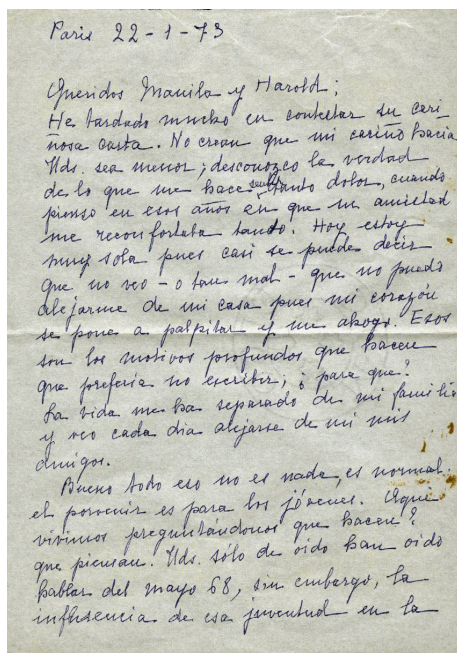 Paris 22-1-73
Queridos Manila y Harold;
He tardado mucho en contestar su cari-
ñosa carta. No crean que mi cariño hacia
Uds. sea menor; desconozco la verdad
de lo que me hace sentir tanto dolor, cuando
pienso en esos años en que su amistad
me reconfortaba tanto. Hoy estoy
muy sola pues casi se puede decir
que no veo - o tan mal - que no puedo
alejarme de mi casa pues mi corazón
se pone a palpitar y me ahogo. Esos
son los motivos profundos que hacen
que preferia no escribir; ¿para que?
La vida me ha separado de mi familia
y veo cada dia alejarse de mi mis
amigos.
Bueno todo eso no es nada, es normal.
el porvenir es para los jóvenes. Aqui
vivimos preguntándonos que hacen?
que piensan. Uds. sólo de oido han oido
hablar del mayo 68, sin embargo, la
influencia de esa juventud en la